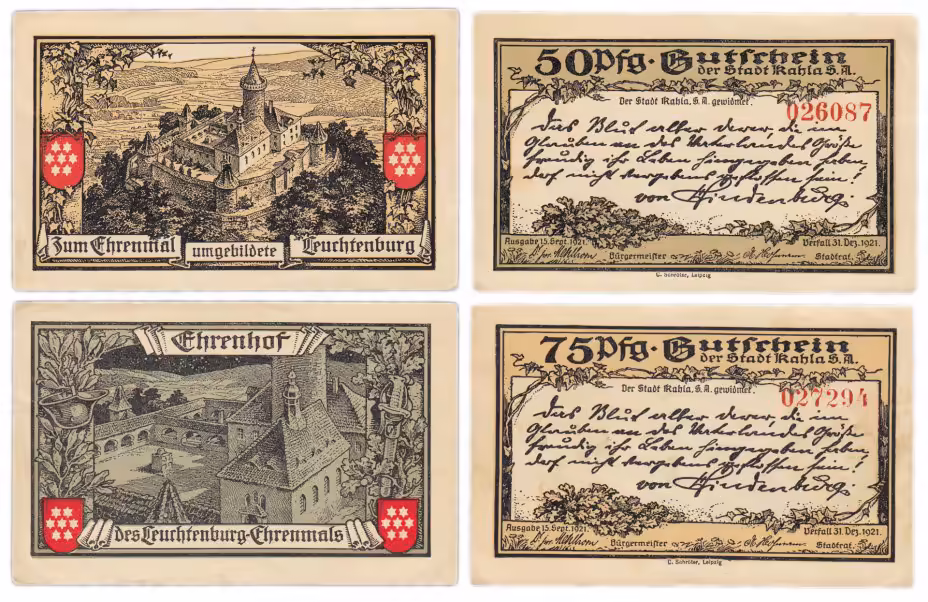 Zum Ehrenmal umgebildete Leuchtenburg
50 Pfg. Gutschein
der Stadt Kahla S.A.
Der Stadt Kahla, S. A. gewidmet.
026087
Das Blut aller derer, die im
Glauben an des Vaterlandes Größe
freudig ihr Leben hingegeben haben,
darf nicht vergebens geflossen sein!
von Hindenburg.
Ausgabe 15. Sept. 1921.
Verfall 31. Dez. 1921.
Bürgermeister
Stadtrat.
C. Schröter, Leipzig
Ehrenhof
des Leuchtenburg-Ehrenmals
75 Pfg. Gutschein
der Stadt Kahla S.A.
Der Stadt Kahla, S. A. gewidmet.
027294
Das Blut aller derer, die im
Glauben an des Vaterlandes Größe
freudig ihr Leben hingegeben haben,
darf nicht vergebens geflossen sein!
von Hindenburg.
Ausgabe 15. Sept. 1921.
Verfall 31. Dez. 1921.
Bürgermeister
Stadtrat.
C. Schröter, Leipzig